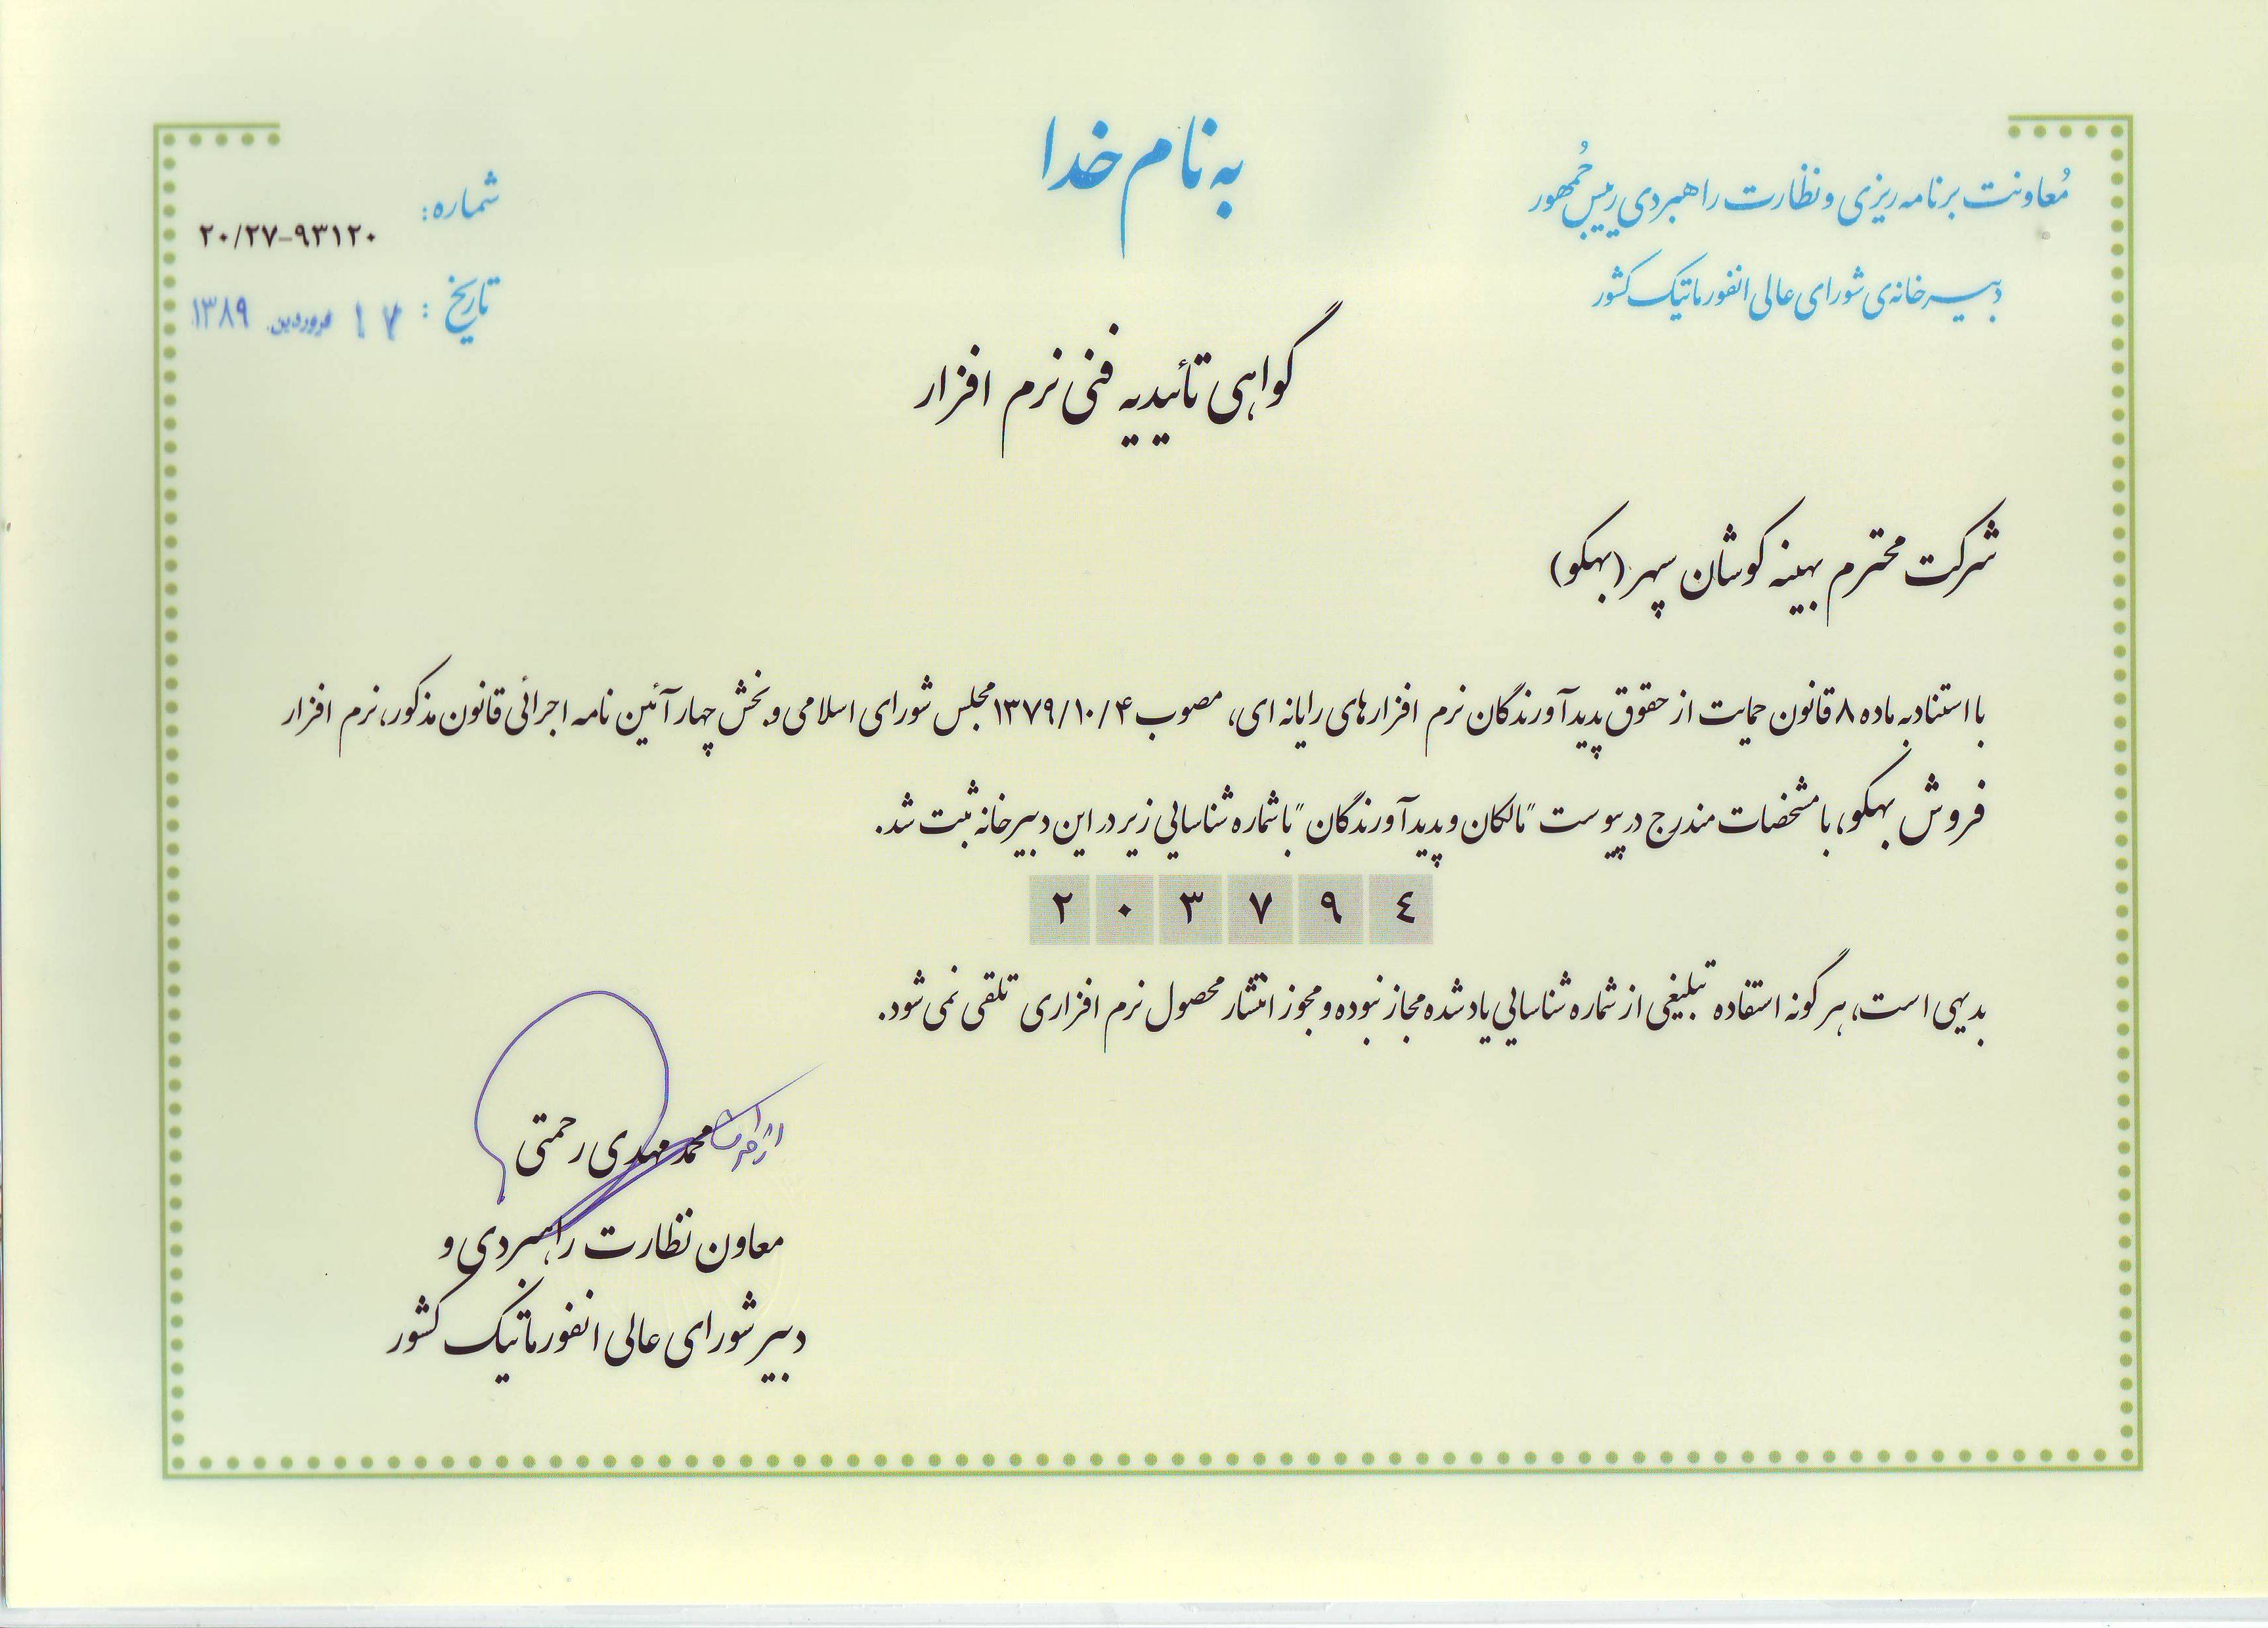 به نام خدا
معاونت برنامه ریزی و نظارت راهبردی رییس جُمهور
دبیرخانه‌ی شورای عالی انفورماتیک کشور
شماره:
۲۰/۲۷-۹۳۱۲۰
تاریخ : ۱۷ فروردین ۱۳۸۹
گواهی تأییدیه فنی نرم افزار
شرکت محترم بهینه کوشان سپهر (بهکو)
با استناد به ماده ۸ قانون حمایت از حقوق پدیدآورندگان نرم افزارهای رایانه ای، مصوب ۱۳۷۹/۱۰/۴ مجلس شورای اسلامی و بخش چهار آئین نامه اجرائی قانون مذکور، نرم افزار
فروش بهکو، با مشخصات مندرج در پیوست "مالکان و پدیدآورندگان" با شماره شناسایی زیر در این دبیرخانه ثبت شد.
۲۰۳۷۹٤
بدیهی است، هر گونه استفاده تبلیغی از شماره شناسایی یاد شده مجاز نبوده و مجوز انتشار محصول نرم افزاری تلقی نمی شود.
محمد مهدی رحمتی
معاون نظارت راهبردی و
دبیر شورای عالی انفورماتیک کشور